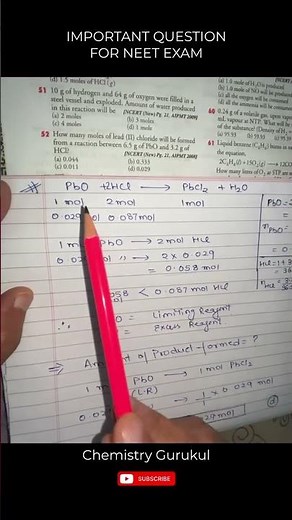 IMPORTANT QUESTION
FOR NEET EXAM
(d) 1.5 moles of HCl(g)
51 10 g of hydrogen and 64 g of oxygen were filled in a
steel vessel and exploded. Amount of water produced
in this reaction will be [NCERT (New) Pg. 21, AIPMT 2009]
(a) 2 moles (b) 3 moles
(c) 4 moles (d) 1 mole
52 How many moles of lead (II) chloride will be formed
from a reaction between 6.5 g of PbO and 3.2 g of
HCl? [NCERT (New) Pg. 21, AIPMT 2008]
(a) 0.044 (b) 0.333
(c) 0.011 (d) 0.029
(a) 1.6 mole of H₂O is produced
(b) 1.0 mole of NO will be produced
(c) all the oxygen will be consumed
(d) all the ammonia will be consumed
60 0.24 g of a volatile gas, upon
mL vapour at NTP. What will be
of the substance? (Density of H₂
(a) 95.93 (b) 59.93 (c) 95.39
61 Liquid benzene (C₆H₆) burns in
the equation.
2C₆H₆(l) + 15O₂(g) → 12CO
How many litres of O₂ at STP are
PbO + 2HCl → PbCl₂ + H₂O
1 mol 2 mol 1 mol
0.029 mol 0.087 mol
1 mol PbO → 2 mol HCl
0.02 " → 2 x 0.029
= 0.058 mol
058 < 0.087 mol HCl
∴ = Limiting Reagent
= Excess Reagent
⇒ Amount of Product formed = ?
1 m PbO → 1 mol PbCl₂
(L.R)
0.02 → 1 x 0.029 mol
mol (d)
Chemistry Gurukul
SUBSCRIBE